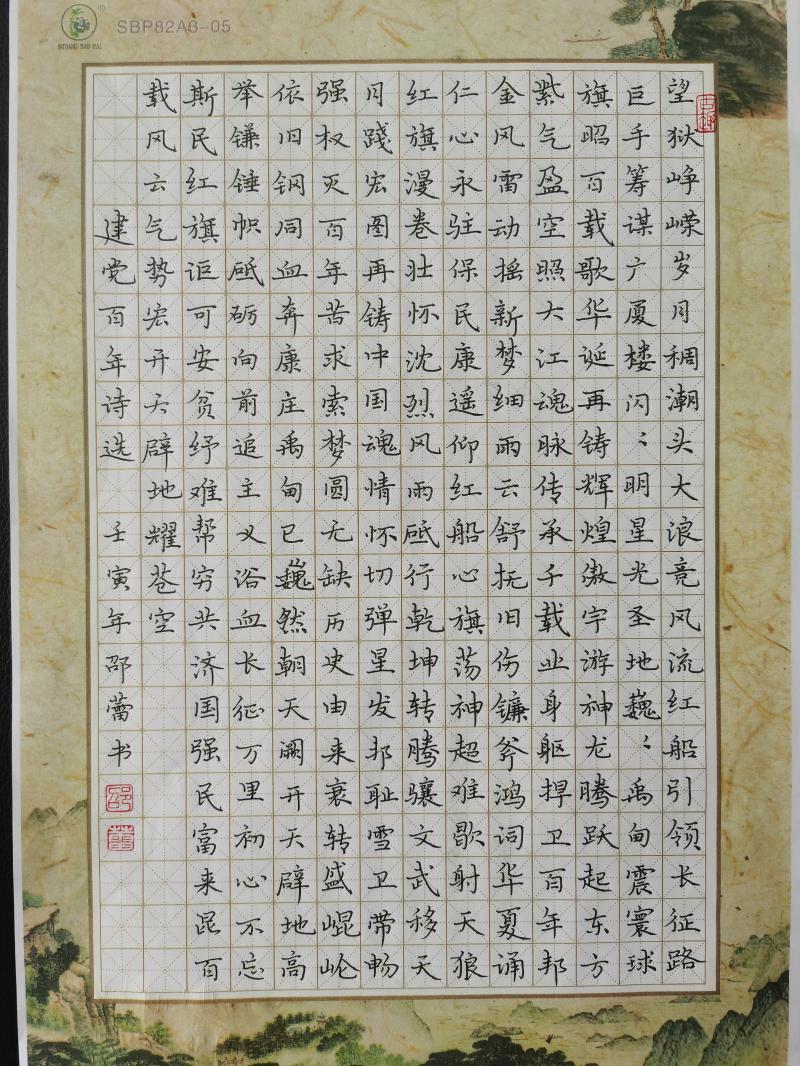 SBP82A3-05
望狱峥嵘岁月稠潮头大浪竞风流红船引领长征路
巨手筹谋广厦楼闪〻明星光圣地巍〻禹甸震寰球
旗昭百载歌华诞再铸辉煌傲宇游神龙腾跃起东方
紫气盈空照大江魂脉传承千载业身躯捍卫百年邦
金风雷动摇新梦细雨云舒抚旧伤镰斧鸿词华夏诵
仁心永驻保民康遥仰红船心旗荡神超难歇射天狼
红旗漫卷壮怀沈烈风雨砥行乾坤转腾骧文武移天
月践宏图再铸中国魂情怀切弹星发邦耻雪卫带畅
强权灭百年苦求索梦圆无缺历史由来衰转盛崐𪨧
依旧钢同血奔康庄禹甸已巍然朝天阙开天辟地高
举镰锤帜砥砺向前追主义浴血长征万里初心不忘
斯民红旗讵可安贫纾难帮穷共济国强民富来昆百
载风云气势宏开天辟地耀苍空
建党百年诗选 壬寅年邵蕾书
邵
蕾